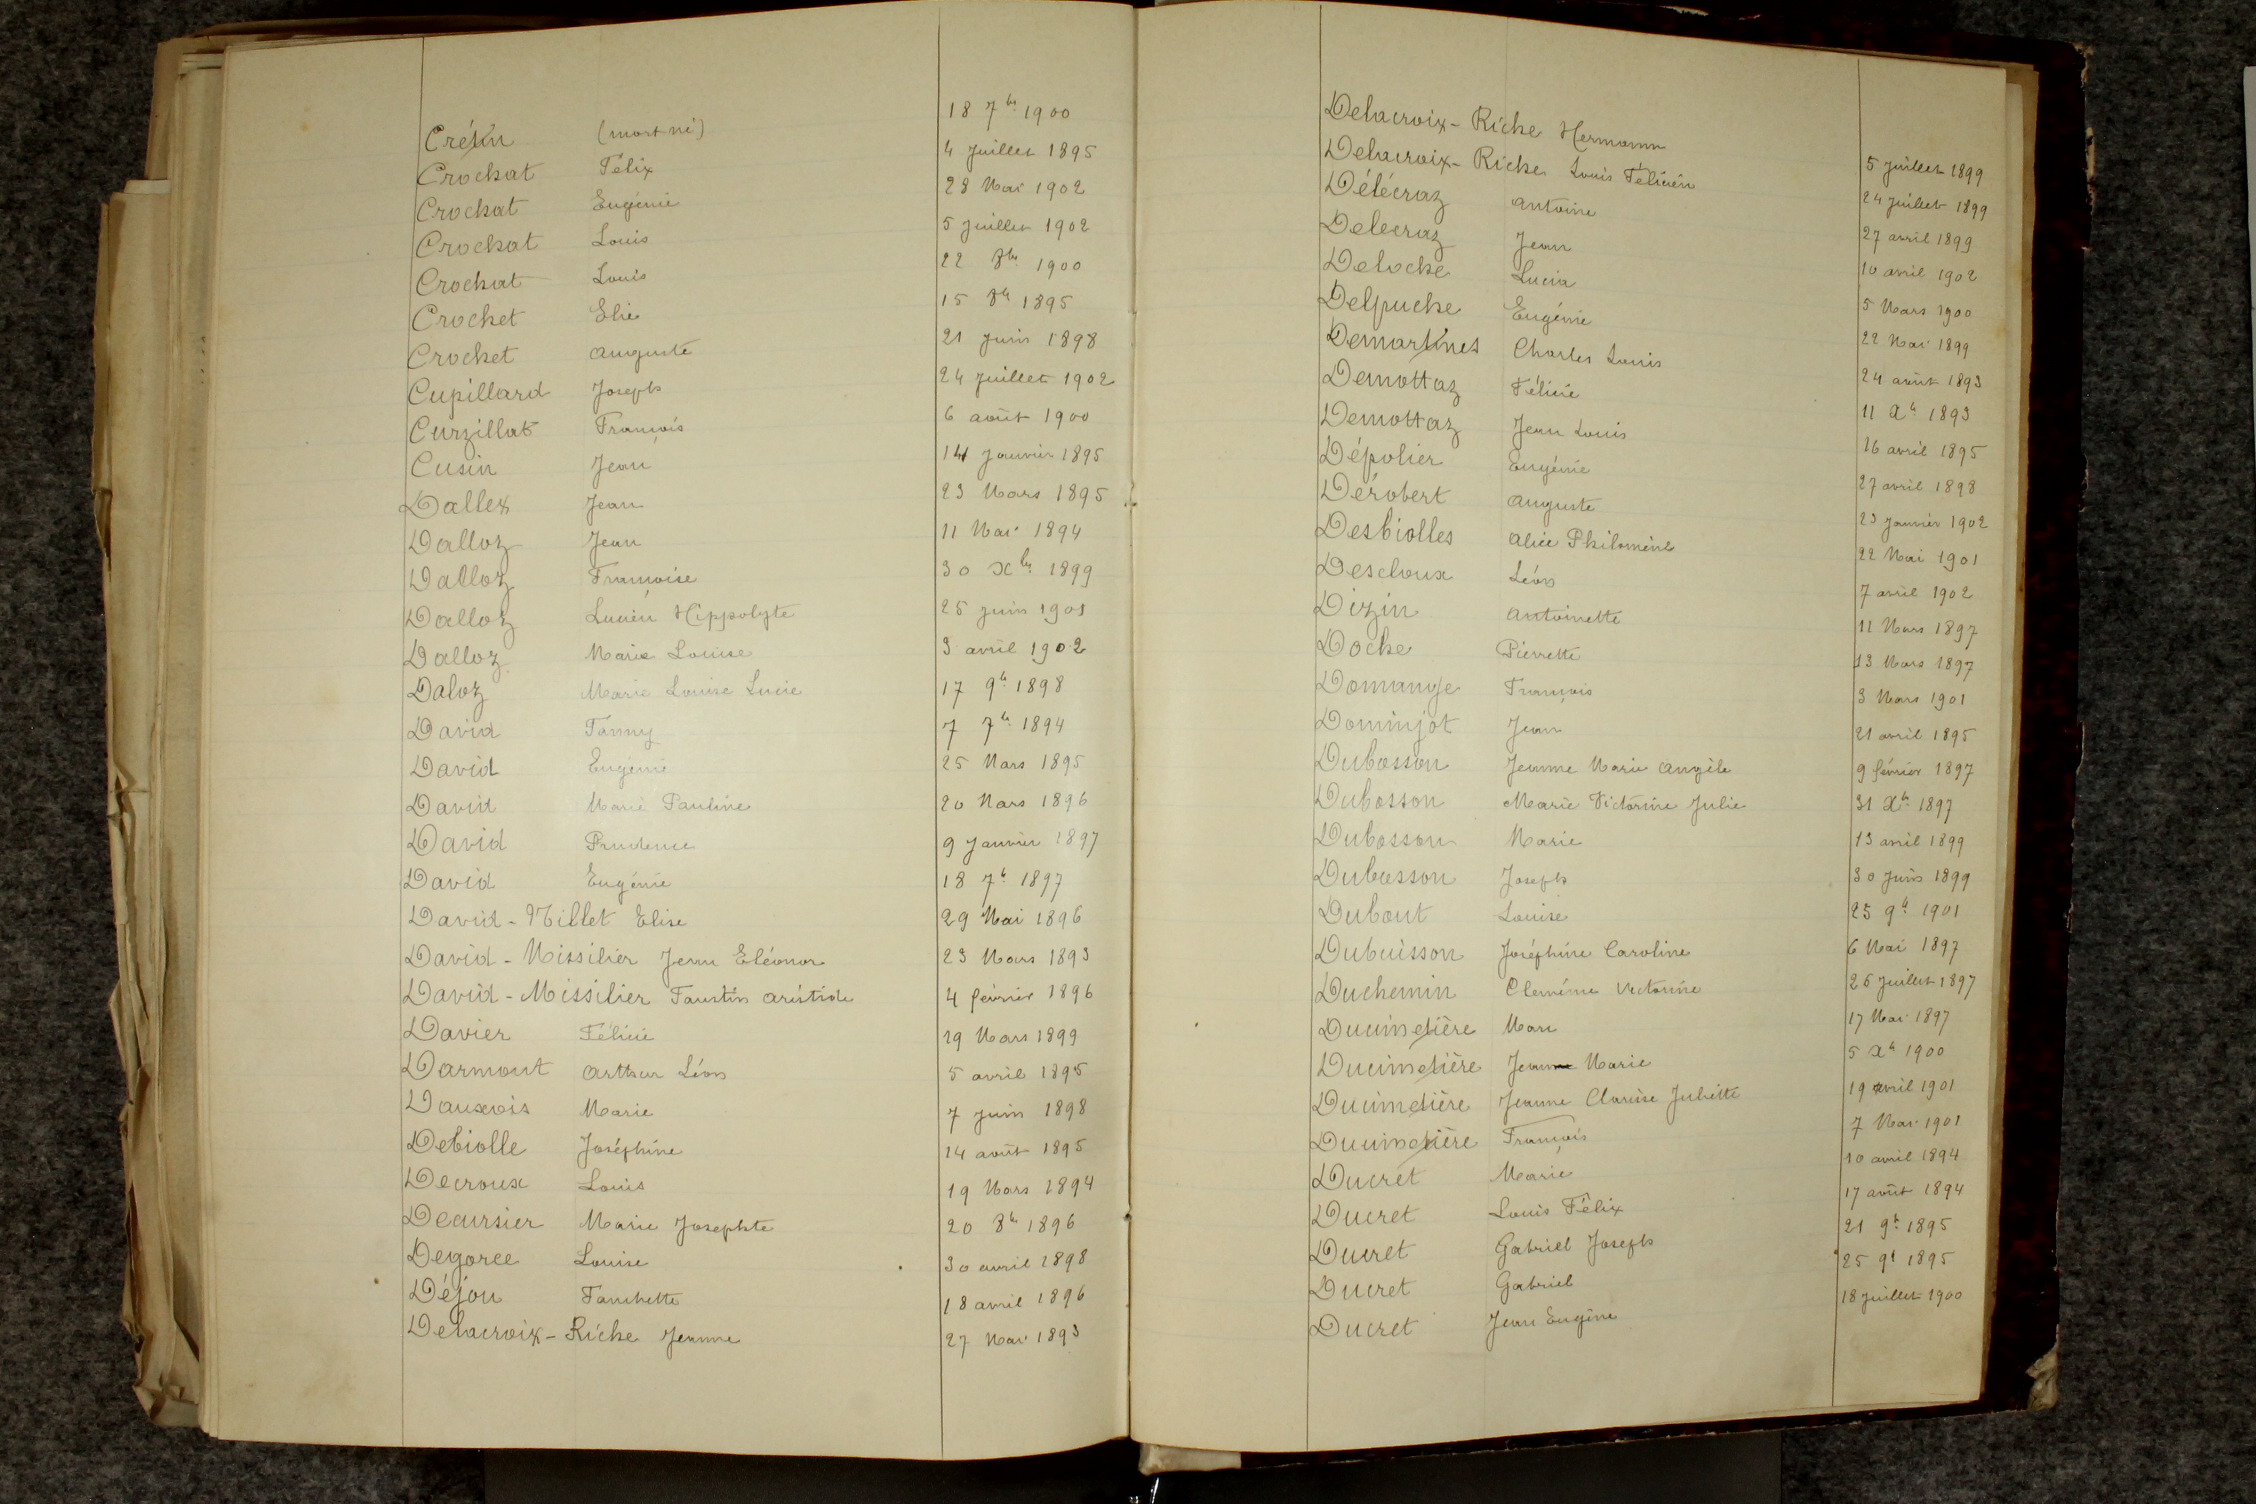 Crétin (mort né) 18 7bre 1900
Crochat Félix 4 Juillet 1895
Crochat Eugénie 28 Mai 1902
Crochat Louis 5 Juillet 1902
Crochat Louis 22 8bre 1900
Crochet Elie 15 8bre 1895
Crochet Auguste 21 Juin 1898
Cupillard Joseph 24 Juillet 1902
Curzillat François 6 août 1900
Cusin Jean 14 Janvier 1895
Dallex Jean 23 Mars 1895
Dalloz Jean 11 Mai 1894
Dalloz Françoise 30 Xbre 1899
Dalloz Lucien Hippolyte 25 Juin 1901
Dalloz Marie Louise 3 avril 1902
Daloz Marie Louise Lucie 17 9bre 1898
David Fanny 7 7bre 1894
David Eugénie 25 Mars 1895
David Marie Pauline 20 Mars 1896
David Prudence 9 Janvier 1897
David Eugénie 18 7bre 1897
David-Millet Elise 29 Mai 1896
David-Missilier Jean Eléonor 23 Mars 1893
David-Missilier Faustin Aristide 4 février 1896
Davier Félicie 19 Mars 1899
Darmont Arthur Léon 5 avril 1895
Dauxois Marie 7 Juin 1898
Debiolle Joséphine 14 août 1895
Decroux Louis 19 Mars 1894
Decursier Marie Josephte 20 8bre 1896
Degoree Louise 30 avril 1898
Déjou Fanchette 18 avril 1896
Delacroix-Riche Jeanne 27 Mai 1893
Delacroix-Riche Hermann 5 Juillet 1899
Delacroix-Riche Louis Félicien 24 Juillet 1899
Délécraz Antoine 27 avril 1899
Delecraz Jean 10 avril 1902
Deloche Lucia 5 Mars 1900
Delpuche Eugénie 22 Mai 1899
Demartines Charles Louis 24 août 1893
Demottaz Félicie 11 Xbre 1893
Demottaz Jean Louis 16 avril 1895
Dépolier Eugénie 27 avril 1898
Dérobert Auguste 23 Janvier 1902
Desbiolles Alice Philomène 22 Mai 1901
Descloux Léon 7 avril 1902
Dizin Antoinette 11 Mars 1897
Doche Pierrette 13 Mars 1897
Domange François 3 Mars 1901
Dominjot Jean 21 avril 1895
Dubosson Jeanne Marie Angèle 9 février 1897
Dubosson Marie Victorine Julie 31 Xbre 1897
Dubosson Marie 13 avril 1899
Dubosson Joseph 30 Juin 1899
Dubout Louise 25 9bre 1901
Dubuisson Joséphine Caroline 6 Mai 1897
Duchemin Clémence Victorine 26 Juillet 1897
Ducimetière Marc 17 Mai 1897
Ducimetière Jean Marie 5 Xbre 1900
Ducimetière Jeanne Clarisse Juliette 19 avril 1901
Ducimetière François 7 Mai 1901
Ducret Marie 10 avril 1894
Ducret Louis Félix 17 août 1894
Ducret Gabriel Joseph 21 9bre 1895
Ducret Gabriel 25 9bre 1895
Ducret Jean Eugène 18 Juillet 1900